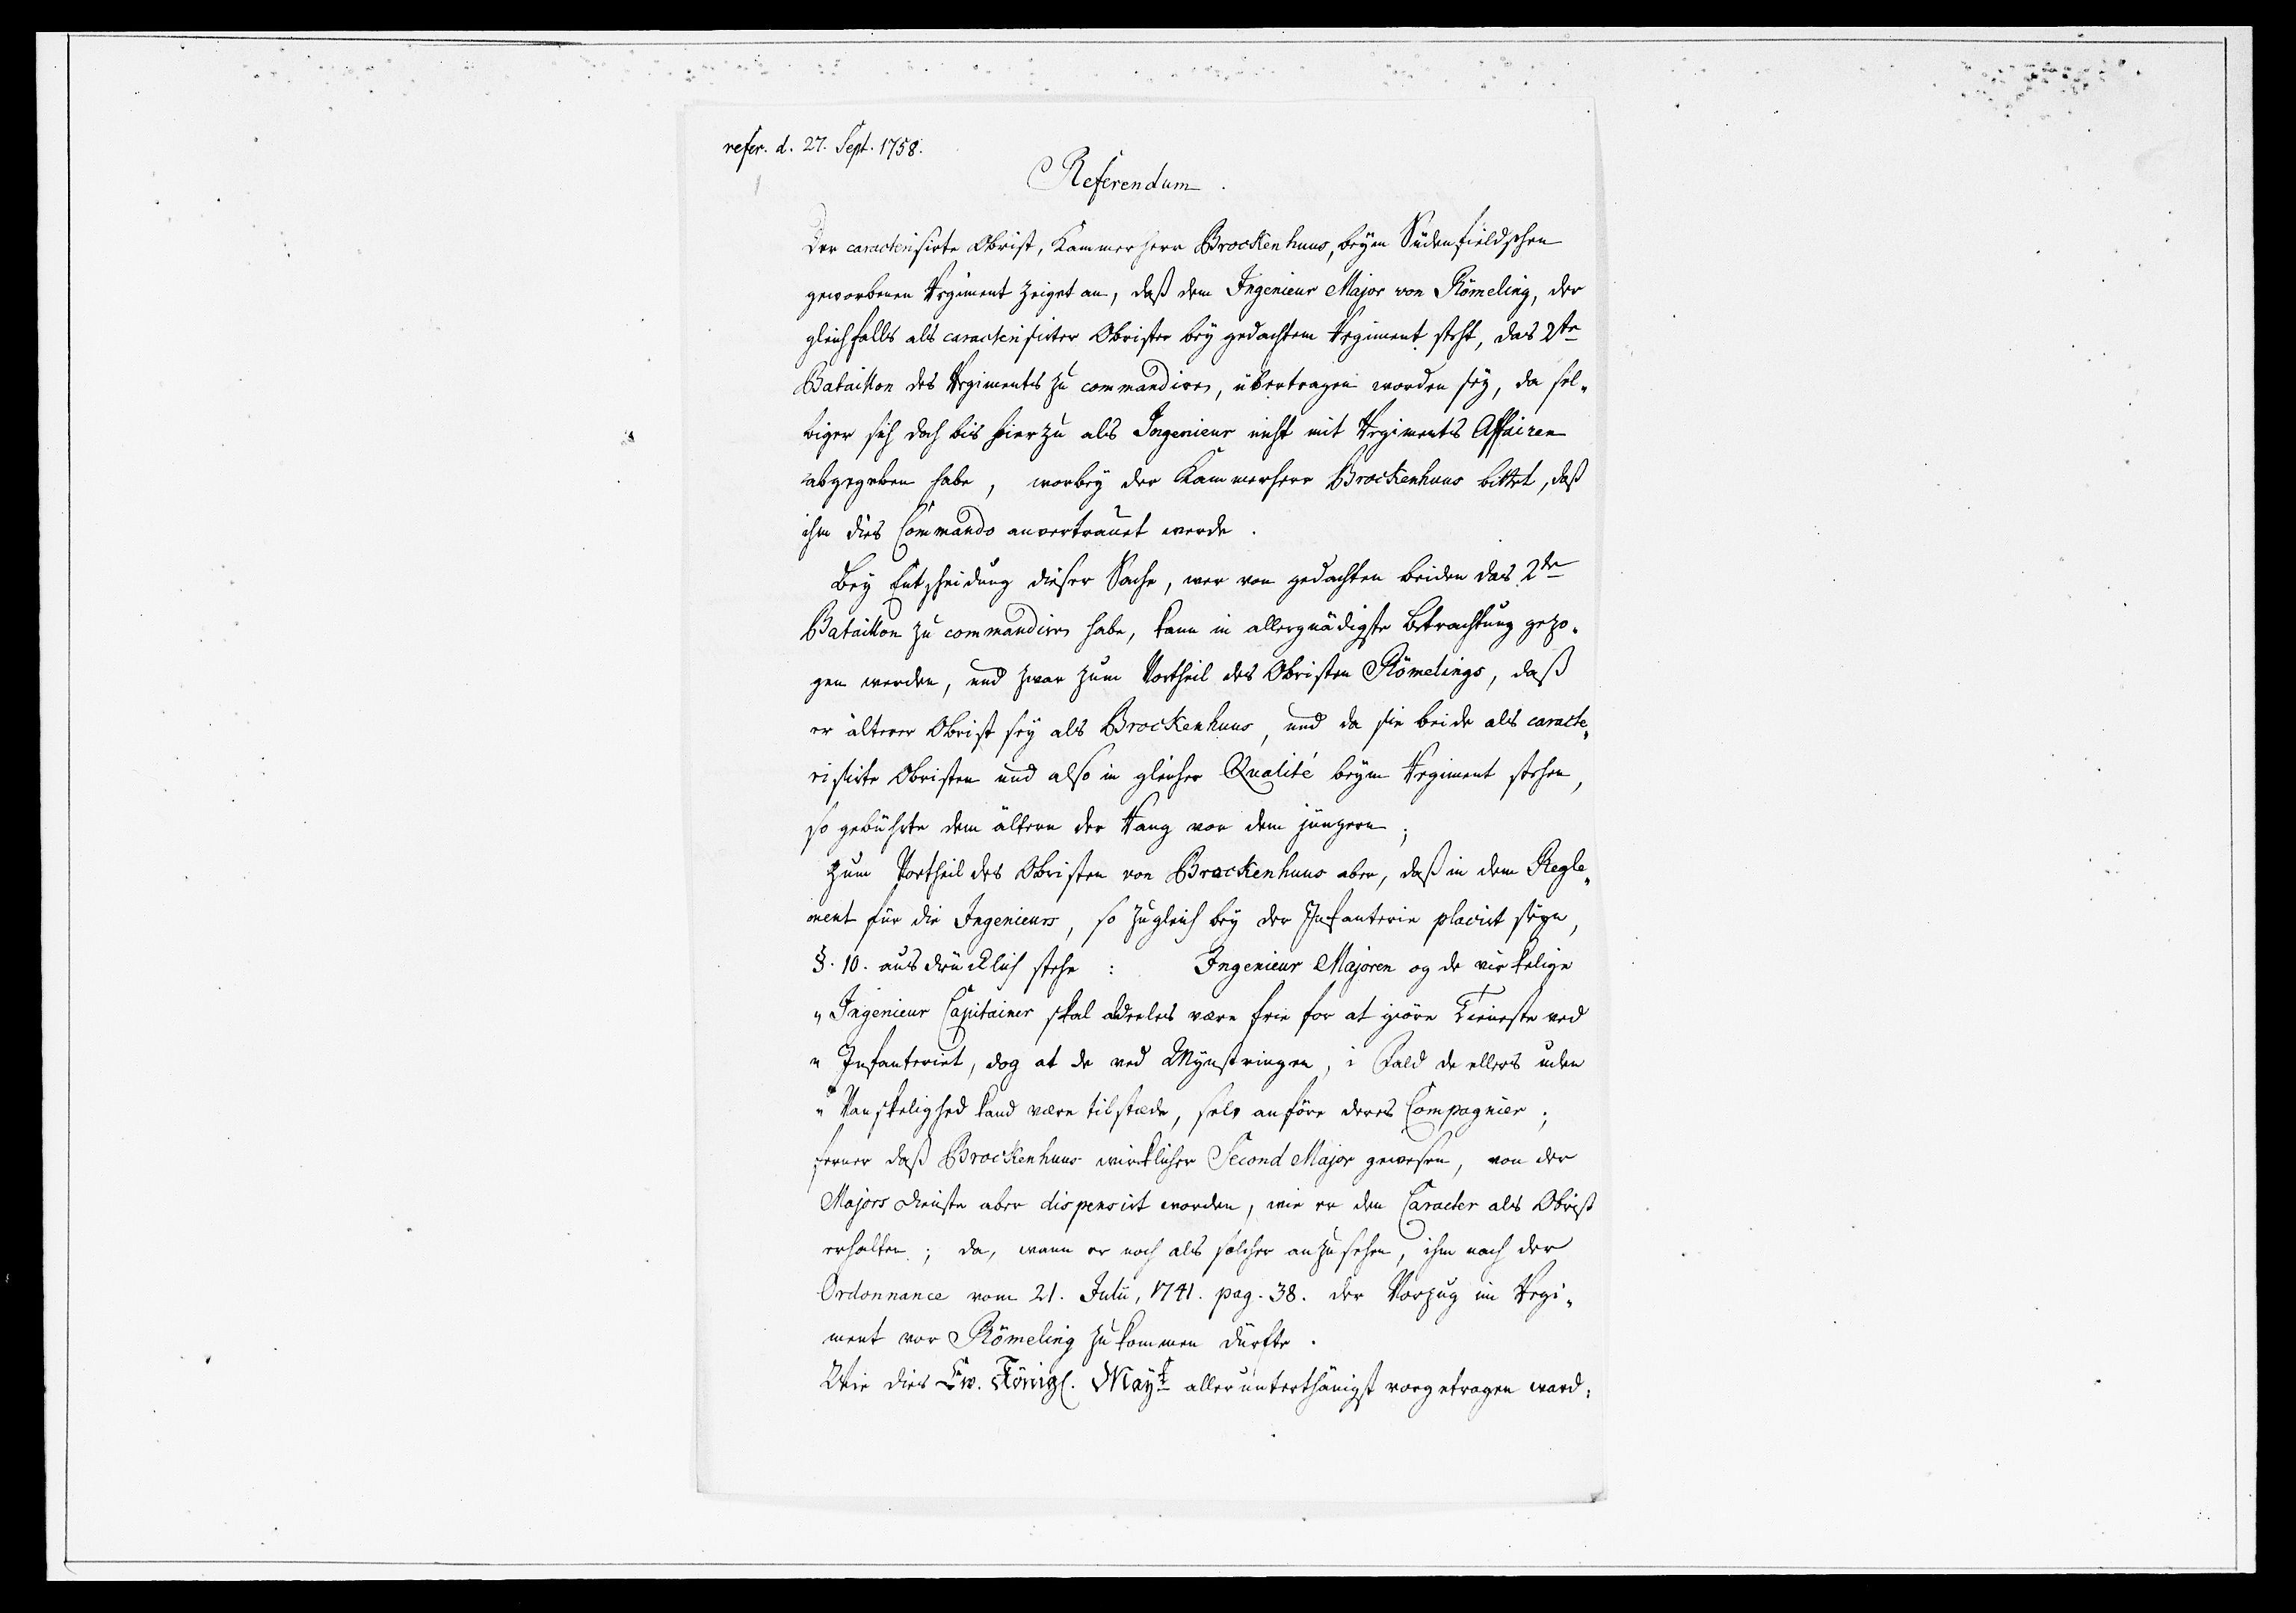 refer. d. 27. Sept. 1758.
Referendum.
Der caracterisirte Obrist, Kammerherr Brockenhuus, beÿm Südenfieldschen
geworbenen Regiment zeiget an, daß dem Ingenieur Major von Römeling, der
gleichfalls als caracterisirter Obrister beÿ gedachtem Regiment steht, das 2te
Bataillon des Regiments zu commandiren, übertragen worden seÿ, da sel„
biger sich doch bis hierzu als Ingenieur nicht mit Regiments Affairen
abgegeben habe, worbeÿ der Kammerherr Brockenhuus bittet, daß
ihm dies Commando anvertrauet werde.
Beÿ Entscheidung dieser Sache, wer von gedachten beiden das 2te
Bataillon zu commandiren habe, kann in allergnädigste Betrachtung gezo„
gen werden, und zwar zum Vortheil des Obristen Römelings, daß
er älterer Obrist seÿ als Brockenhuus, und da sie beide als caracte„
risirte Obristen und also in gleicher Qualité beÿm Regiment stehen,
so gebührte dem ältern der Rang vor dem jüngern;
Zum Vortheil des Obristen von Brockenhuus aber, daß in dem Regle„
ment für die Ingenieurs, so zugleich beÿ der Infanterie placirt seÿn,
§. 10. ausdrücklich stehe: Ingenieur Majoren og de virkelige
„ Ingenieur Capitainer skal aldeeles være frie for at giöre Tieneste ved
„ Infanteriet, dog at de ved Mÿnstringen, i Fald de ellers uden
„ Vanskelighed kand være tilstæde, selv anföre deres Compagnier;
ferner daß Brockenhuus wircklicher Second Major gewesen, von der
Majors Dienste aber dispensirt worden, wie er den Caracter als Obrist
erhalten; da, wann er noch als solcher anzusehen, ihm nach der
Ordonnance vom 21. Julii, 1741. pag. 38. der Vorzug im Regi„
ment vor Römeling zukommen dürfte.
Wie dies Ew. Königl. Maÿt allerunterthänigst vorgetragen ward: